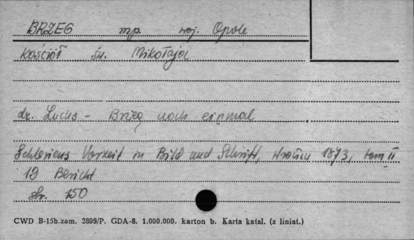 BRZEG mp. woj. Opole
Kościół św. Mikołaja
dr. Luchs - Brieg noch einmal
Schlesiens Vorzeit in Bild und Schrift, Wrocław 1873, tom II
19 Bericht
str. 150
CWD B-15b.zam. 2899/P. GDA-8. 1.000.000. karton b. Karta katal. (z liniat.)